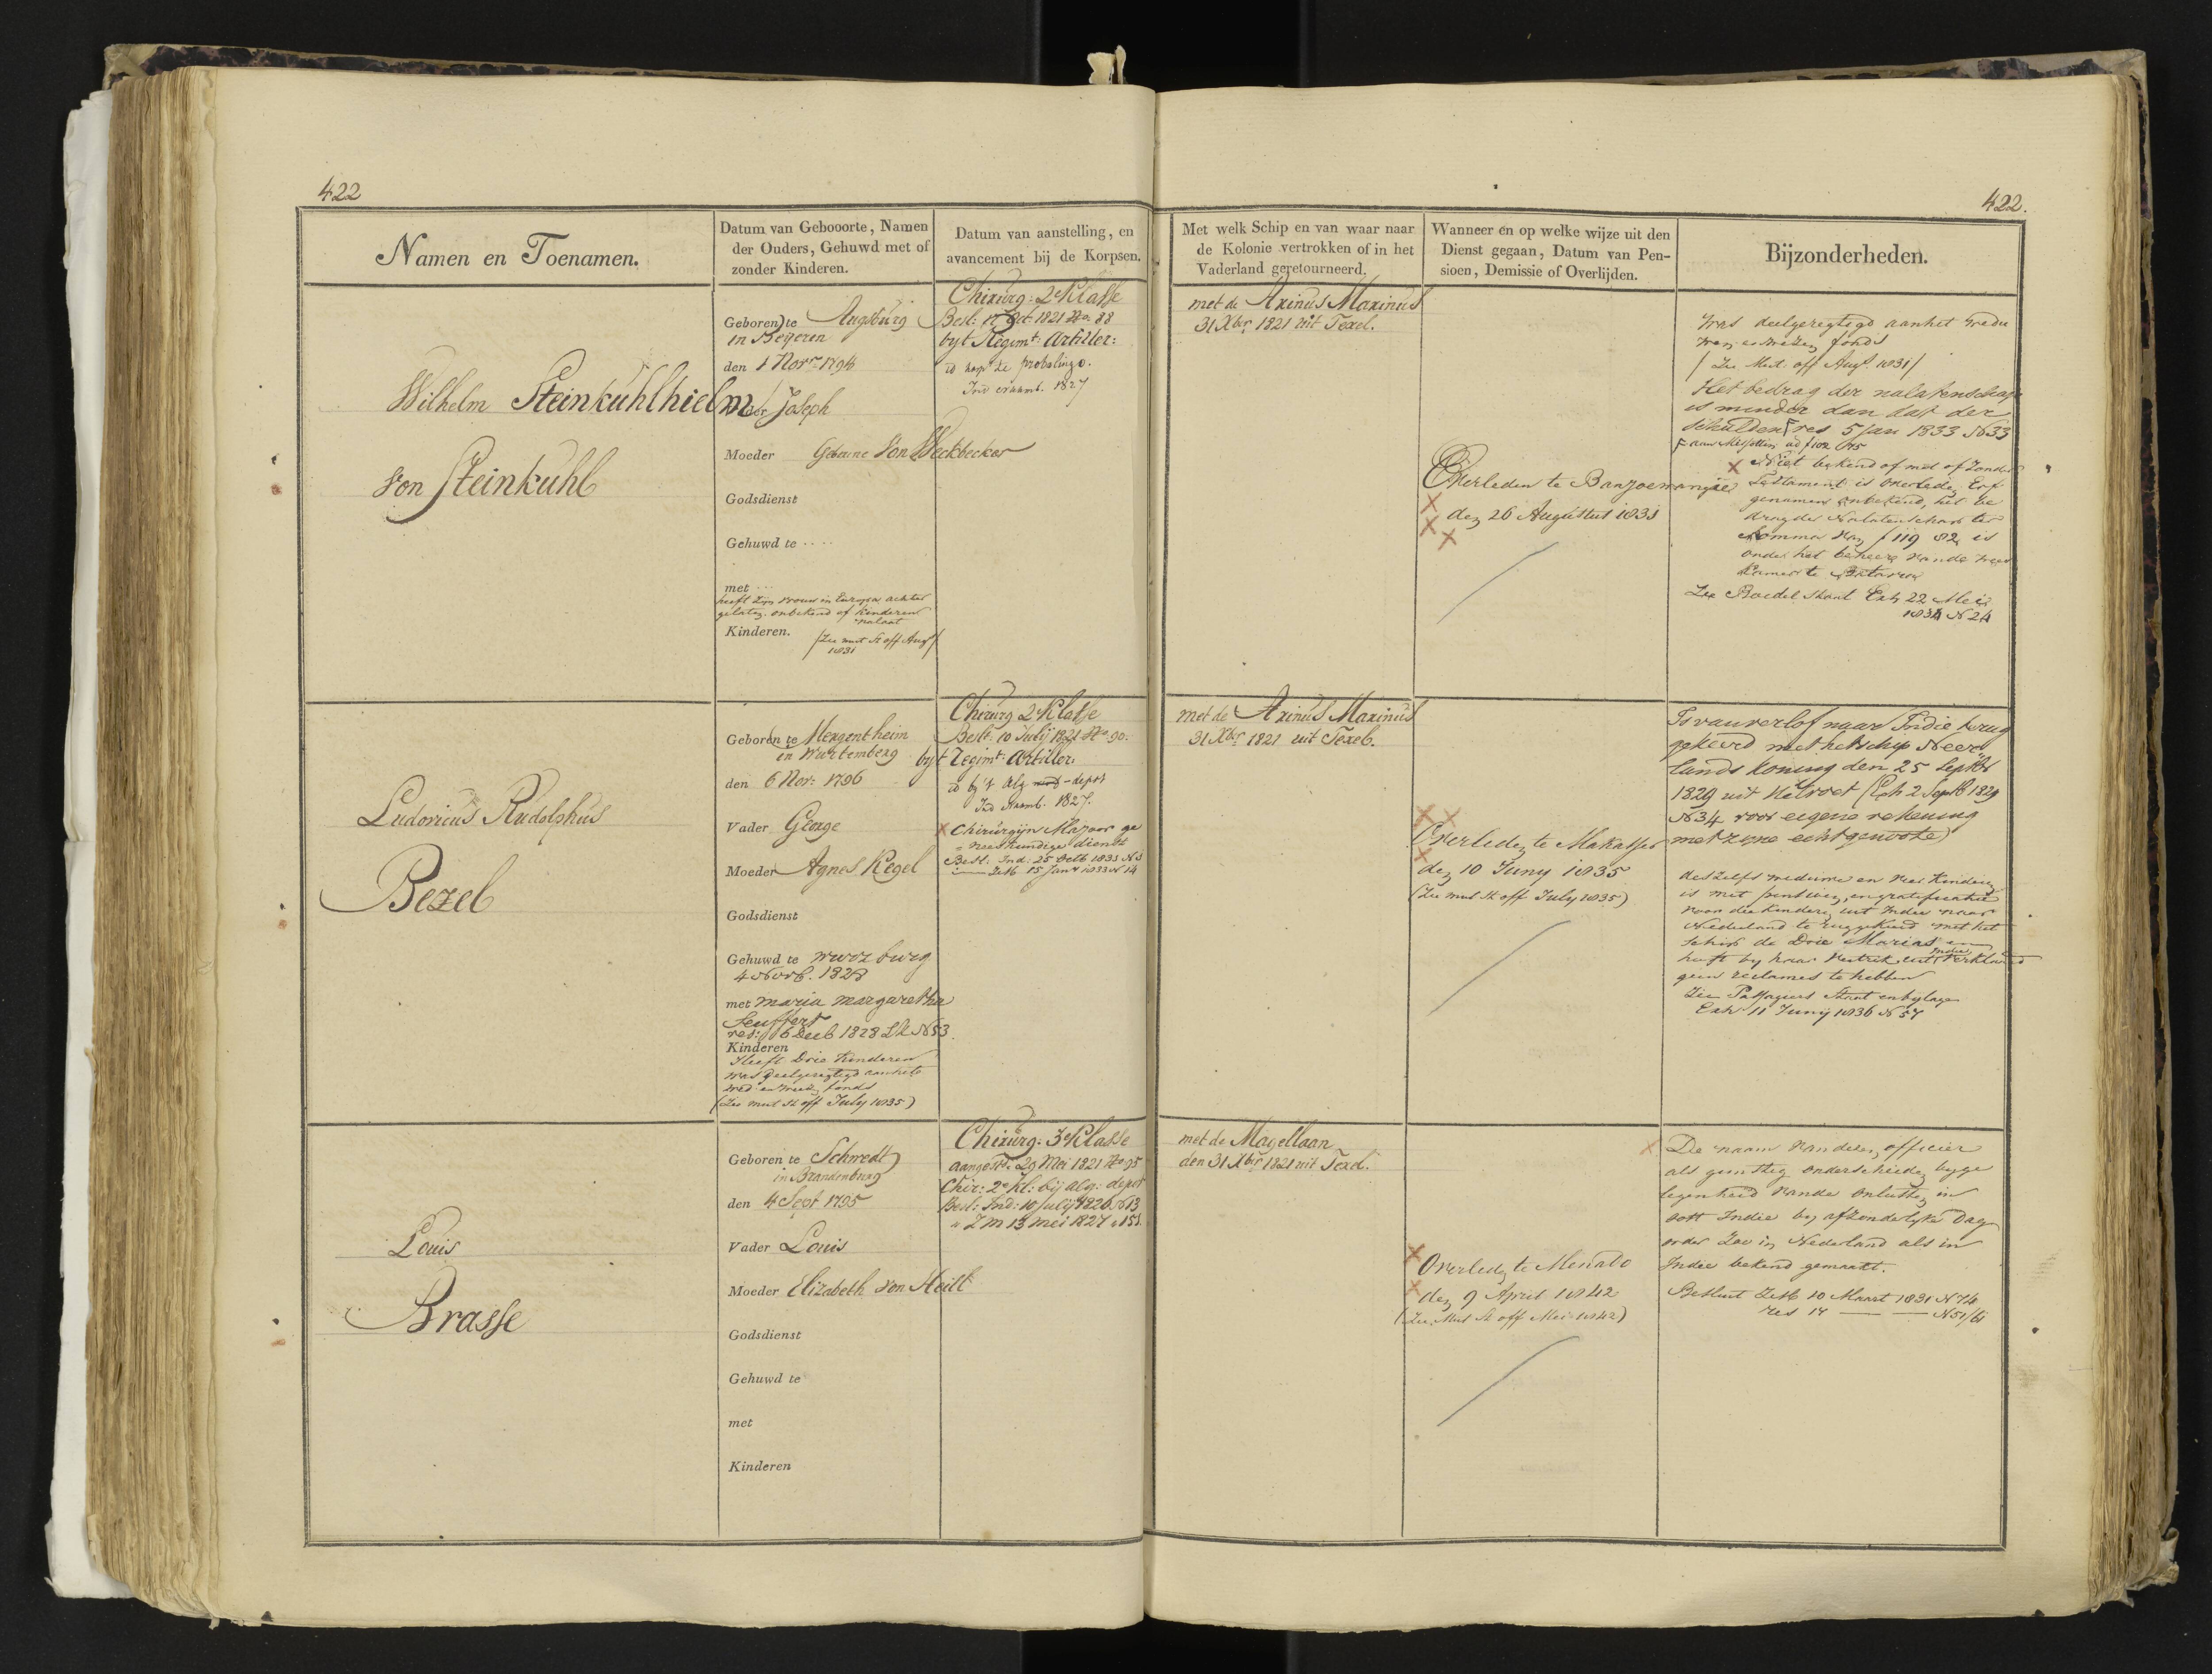 422
422.
Namen en Toenamen.
Datum van Gebooorte, Namen
der Ouders, Gehuwd met of
zonder Kinderen.
Datum van aanstelling, en
avancement bij de Korpsen.
Met welk Schip en van waar naar
de Kolonie vertrokken of in het
Vaderland geretourneerd.
Wanneer en op welke wijze uit den
Dienst gegaan, Datum van Pen-
sioen, Demissie of Overlijden.
Bijzonderheden.
Wilhelm Steinkuhlhielm
Von Steinkuhl
Geboren te Augsburg
in Beijeren
den 1 Novr 1794
Vader Joseph
Moeder Geborene Von Weckbecker
Godsdienst
Gehuwd te ....
met ...
heeft zyn vrouw in Europa achter
gelaten onbekend of kinderen
nalaat
Kinderen.
(Zie mut St off Augs
1831
Chirurg: 2e Klasse
Besl: 17 Oct: 1821 No. 88
byt Regimt: Artiller:
Ind 1827
met de Axinus Maxinus
31 Xber 1821 uit Texel.
Overleden te Banjoewangie
den 26 Augustus 1831
Was deelgeregtigd aan het wedu
wen en weezen fonds
(Zie Mut. off Augs. 1831)
Het bedrag der nalatenschap
is minder dan dat der
Schulden res 5 Jan 1833 N33
Niet bekend of met of zonder
Testament is overleden Erf
genamen onbekend, het be
drag der Nalatenschap ter
Somma van f 119 82 is
onder het beheer van de wees
kamer te Batavia
Zie Boedel Staat Exh 22 Mei
1834 N 24
Ludovicus Rudolphus
Bezel
Geboren te Mergentheim
in Wurtemberg
den 6 Nov: 1796
Vader George
Moeder Agnes Kegel
Godsdienst
Gehuwd te wurzburg
4 Novb. 1828
met maria margaretha
Seuffert
res: 16 Decb 1828 N 53.
Kinderen
Heeft Drie Kinderen
was deelgeregtigd aan hets
wed: en weez. fonds
(Zie mut St off July 1835)
Chirurg 2e Klasse
Besl: 10 July 1821 No. 90.
byt Regimt: Artiller:
id by 't alg - depot
Ind Naamb. 1827.
Chirurgijn Majoor ge
neeskundige dienst
Besl: Ind: 25 Octb 1831 N 1
15 Jan 1833 N 14
met de Axinus Maxinus
31 Xber 1821 uit Texel.
Overleden te Makasser
den 10 Juny 1835
(Zie mut St off July 1835)
Is van verlof naar Indie terug
gekeerd met het schip Neer
lands Koning den 25 Septbr
1829 uit Helvoet (Exh 2 Septb 1829
N 34 voor eigene rekening
met zyne echtgenoote)
deszelfs weduwe en vier Kinderen
is met pensioen, en gratificatie
voor die kinderen uit Indie naar
Nederland te ruggekeerd met het
schip de Drie Marias en
heeft by haar vertrek uit Indie verklaard
geen reclames te hebben
Zie Passagiers Staat en bylage
Exh 11 Juny 1836 N 57
Louis
Brasse
Geboren te Schwedt
in Brandenburg
den 4 Sept 1795
Vader Louis
Moeder Elizabeth von Heill
Godsdienst
Gehuwd te
met
Kinderen
Chirurg: 3e Klasse
aangest: 29 Mei 1821 No 95
Chir: 2e Kl: bij alg: depot
Besl: Ind: 10 July 1826 N 13
" Z M 13 mei 1827 " 151.
met de Magellaan
den 31 Xber 1821 uit Texel.
Overleden te Menado
den 9 April 1842
(Zie Mut St off Mei 1842)
De naam van dezen officier
als gunstig onderscheiden byge
legenheid van de onlusten in
oost Indie by afzonderlyke Dag
order zoo in Nederland als in
Indie bekend gemaakt.
Besluit 10 Maart 1831 N 74
res 14 — — N 51/61